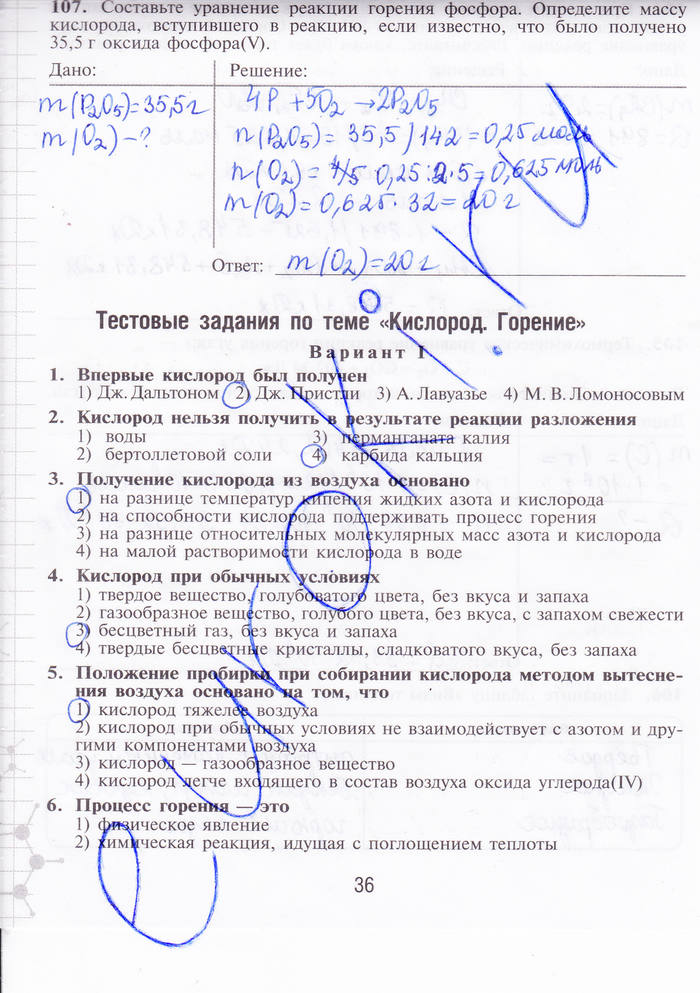 107. Составьте уравнение реакции горения фосфора. Определите массу
кислорода, вступившего в реакцию, если известно, что было получено
35,5 г оксида фосфора(V).
Дано:
Решение:
m(P₂O₅)=35,5г
m(O₂)–?
4P+5O₂→2P₂O₅
n(P₂O₅)=35,5/142=0,25моль
n(O₂)= 0,25:2·5=0,625моль
m(O₂)=0,625·32=20г
Ответ: m(O₂)=20г
Тестовые задания по теме «Кислород. Горение»
Вариант I
1. Впервые кислород был получен
1) Дж. Дальтоном 2) Дж. Пристли 3) А. Лавуазье 4) М. В. Ломоносовым
2. Кислород нельзя получить в результате реакции разложения
1) воды 3) перманганата калия
2) бертоллетовой соли 4) карбида кальция
3. Получение кислорода из воздуха основано
1) на разнице температур кипения жидких азота и кислорода
2) на способности кислорода поддерживать процесс горения
3) на разнице относительных молекулярных масс азота и кислорода
4) на малой растворимости кислорода в воде
4. Кислород при обычных условиях
1) твердое вещество, голубоватого цвета, без вкуса и запаха
2) газообразное вещество, голубого цвета, без вкуса, с запахом свежести
3) бесцветный газ, без вкуса и запаха
4) твердые бесцветные кристаллы, сладковатого вкуса, без запаха
5. Положение пробирки при собирании кислорода методом вытесне-
ния воздуха основано на том, что
1) кислород тяжелее воздуха
2) кислород при обычных условиях не взаимодействует с азотом и дру-
гими компонентами воздуха
3) кислород — газообразное вещество
4) кислород легче входящего в состав воздуха оксида углерода(IV)
6. Процесс горения — это
1) физическое явление
2) химическая реакция, идущая с поглощением теплоты
36